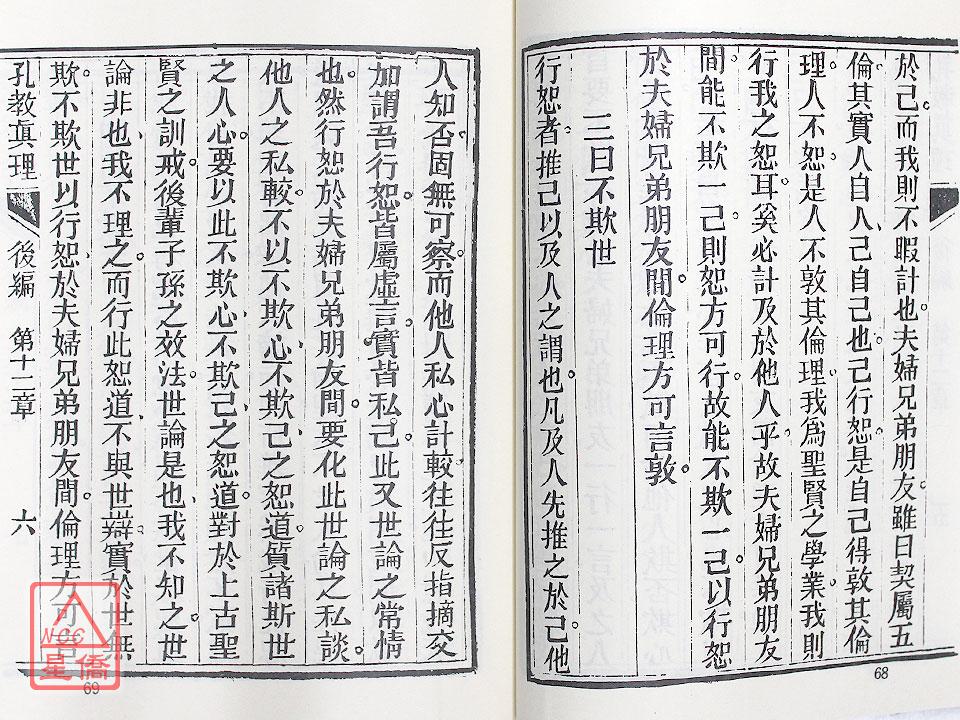 於己。而我則不暇計也。夫婦兄弟朋友。雖曰契屬五
倫。其實人自人、己自己也。己行恕。是自己得敦其倫
理。人不恕。是人不敦其倫理。我爲聖賢之學業。我則
行我之恕耳。奚必計及於他人乎。故夫婦兄弟朋友
間。能不欺一己。則恕方可行。故能不欺一己。以行恕
於夫婦兄弟朋友間。倫理方可言敦。
三曰不欺世
行恕者。推己以及人之謂也。凡及人先推之於己。他
68
人知否。固無可察。而他人私心計較。往往反指摘交
加。謂吾行恕。皆屬虛言。實皆私己。此又世論之常情
也。然行恕於夫婦兄弟朋友間。要化此世論之私談。
他人之私較。不以不欺心、不欺己之恕道。質諸斯世
之人心。要以此不欺心、不欺己之恕道。對於上古聖
賢之訓戒。後輩子孫之效法。世論是也、我不知之。世
論非也、我不理之。而行此恕道、不與世辯。實於世無
欺。不欺世以行恕、於夫婦兄弟朋友間。倫理方可言
孔教真理
後編
第十二章
六
69
NCC
星僑